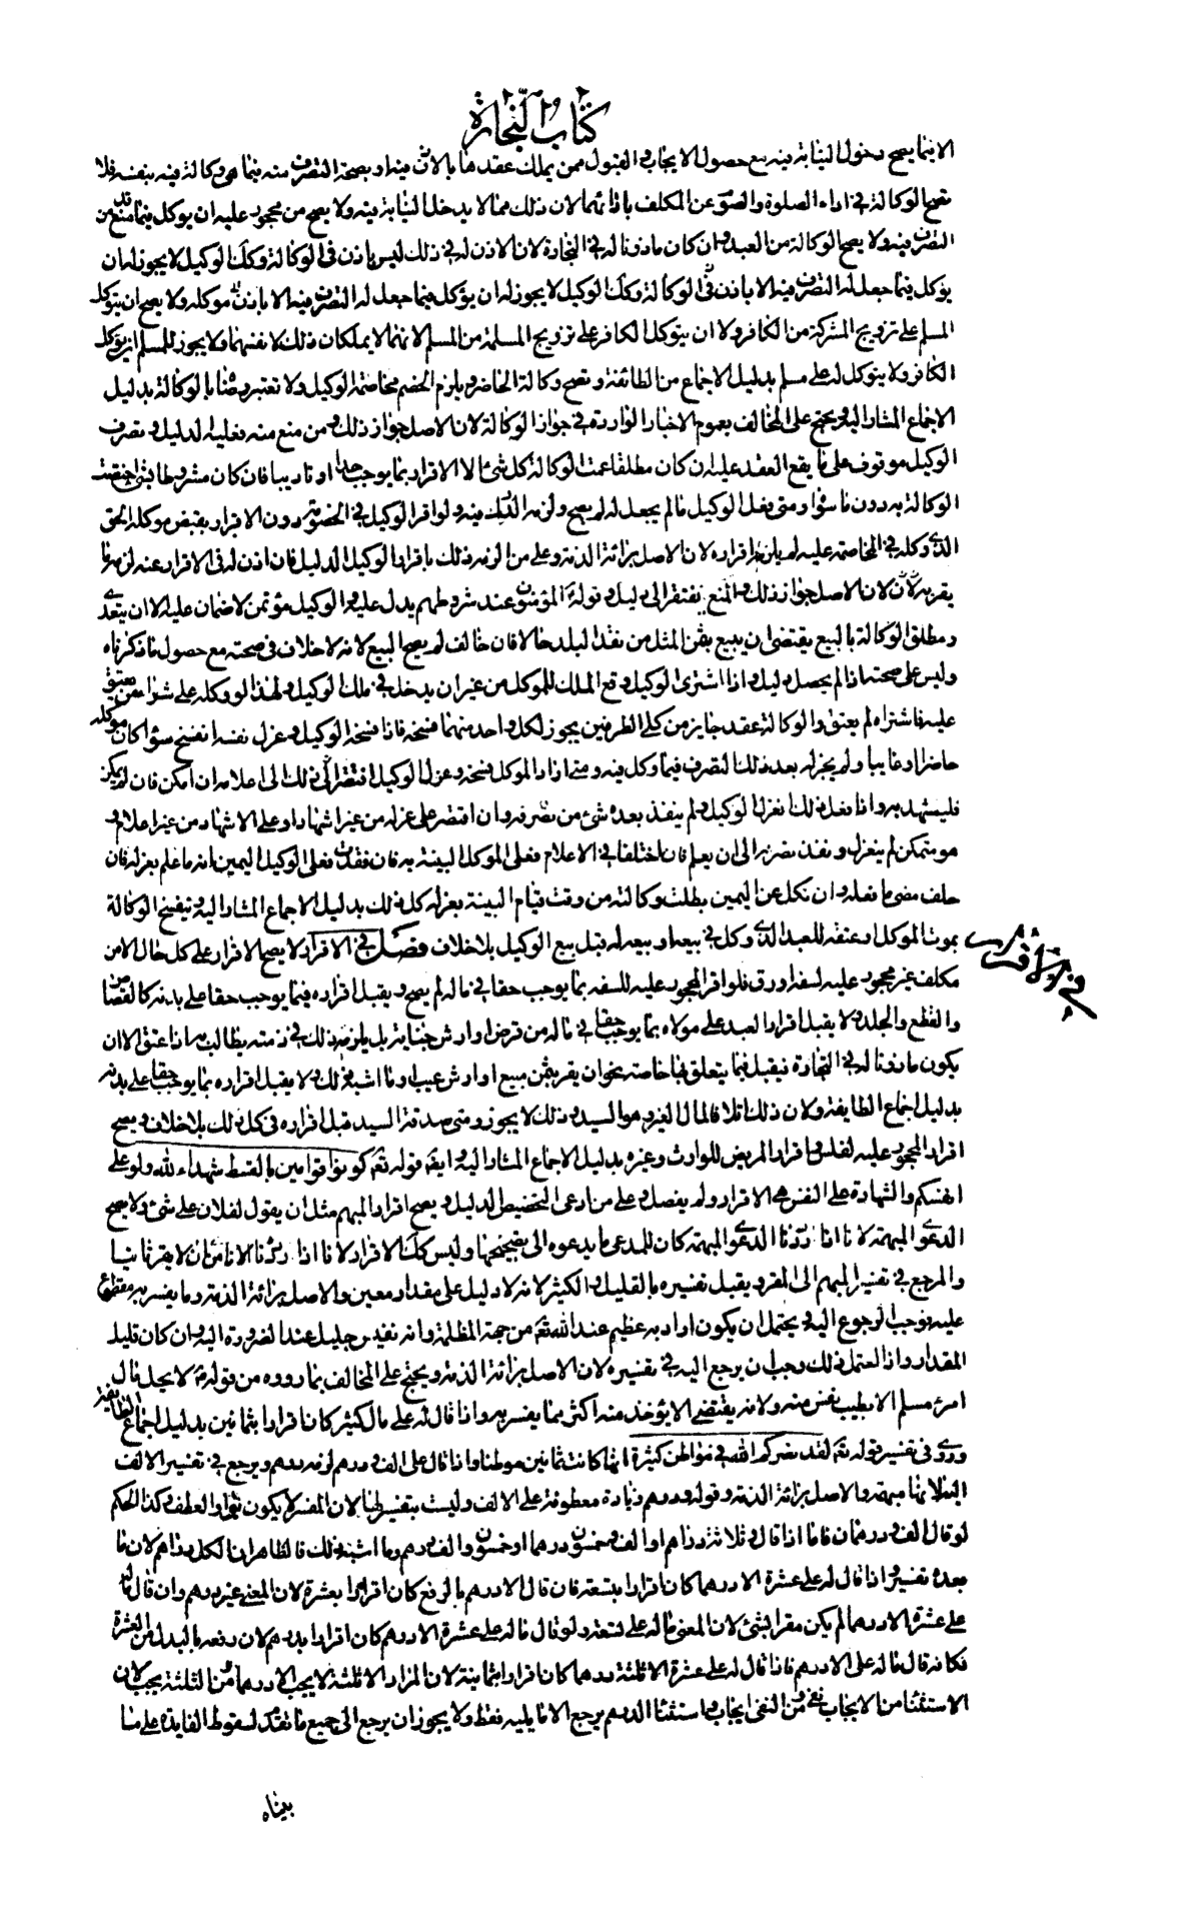 كتاب التجارة
الا فيما يصح دخول النيابة فيه مع حصول الايجاب و القبول ممن يملك عقدها بالاذن فيه او بصحة التصرف منه فيما هي وكالة فيه بنفسه فلا
تصح الوكالة في اداء الصلوة والصوم عن المكلف بادائهما لان ذلك مما لا يدخل النيابة فيه ولا يصح من محجور عليه ان يوكل فيما قد منع من
التصرف فيه ولا يصح الوكالة من العبد وان كان ماذونا له في التجارة لان الاذن له في ذلك ليس باذن في الوكالة وكك الوكيل لا يجوز له ان
يوكل فيما جعل له التصرف فيه الا باذن في الوكالة وكك الوكيل لا يجوز له ان يوكل فيما جعل له التصرف فيه الا باذن موكله ولا يصح ان يتوكل
المسلم على تزويج المشركة من الكافر ولا ان يتوكل الكافر على تزويج المسلمة من المسلم لانهما لا يملكان ذلك لانفسهما ولا يجوز للمسلم ان يوكل
الكافر ولا يتوكل له على مسلم بدليل الاجماع من الطائفة وتصح وكالة الحاضر ويلزم الخصم مخاصمة الوكيل ولا نعتبر رضاه بالوكالة بدليل
الاجماع المشار اليه ويحتج على المخالف بعموم الاخبار الواردة في جواز الوكالة لان الاصل جواز ذلك و من منع منه فعليه الدليل و تصرف
الوكيل موقوف على ما يقع العقد عليه ان كان مطلقا عمت الوكالة كل شئ الا الاقرار بما يوجب حدا او تاديبا فان كان مشروطا بشئ اختصت
الوكالة به دون ما سواه ومتى فعل الوكيل ما لم يجعل له لم يصح ولزمه الدرك فيه ولو اقر الوكيل في الخصومة دون الاقرار بقبض موكله الحق
الذي وكله في المخاصمة عليه لم يلزمه اقراره لان الاصل براءة الذمة وعلى من الزمه ذلك باقرار الوكيل الدليل فان اذن له في الاقرار عنه لزمه ما
يقر به لان الاصل جواز ذلك والمنع يفتقر الى دليل وقوله المؤمنون عند شروطهم يدل عليه و الوكيل مؤتمن لا ضمان عليه الا ان يتعدى
ومطلق الوكالة بالبيع يقتضي ان يبيع بثمن المثل من نقد البلد حالا فان خالف لم يصح البيع لانه لا خلاف في صحته مع حصول ما ذكرناه
وليس على صحته اذا لم يحصل دليل و اذا اشترى الوكيل وقع الملك للموكل من غير ان يدخل في ملك الوكيل ولهذا لو وكله على شراء من يعتق
عليه فاشتراه لم يعتق والوكالة عقد جايز من كلى الطرفين يجوز لكل واحد منهما فسخه فاذا فسخه الوكيل و عزل نفسه انفسخ سواء كان موكله
حاضرا او غايبا ولم يجز له بعد ذلك التصرف فيما وكل فيه ومتى اراد الموكل فسخه وعزل الوكيل افتقر في ذلك الى اعلامه ان امكن فان لم يمكن
فليشهد به واذا فعل ذلك انعزل الوكيل ولم ينفذ بعده شئ من تصرفه وان اقتصر على عزله من غير اشهاد او على الاشهاد من غير اعلام و
هو متمكن لم ينعزل ونفذ تصرفه الى ان يعلم فان اختلفا في الاعلام فعلى الموكل البينة به فان فقدت فعلى الوكيل اليمين انه ما علم بعزله فان
حلف مضى ما فعله وان نكل عن اليمين بطلت وكالته من وقت قيام البينة بعزله كل ذلك بدليل الاجماع المشار اليه وتنفسخ الوكالة
بموت الموكل او عتقه للعبد الذي وكل في بيعه او بيعه له قبل بيع الوكيل بلا خلاف فصل في الاقرار لا يصح الاقرار على كل حال الا من
مكلف غير محجور عليه لسفه او رق فلو اقر المحجور عليه للسفه بما يوجب حقا في ماله لم يصح ويقبل اقراره فيما يوجب حقا على بدنه كالقصاص
والقطع والجلد ولا يقبل اقرار العبد على مولاه بما يوجب حقا في ماله من قرض او ارش جناية بل يلزمه ذلك في ذمته يطالب به اذا عتق الا ان
يكون ماذونا له في التجارة فيقبل فيما يتعلق بها خاصة نحو ان يقر بثمن مبيع او ارش عيب او ما اشبه ذلك ولا يقبل اقراره بما يوجب حقا على بدنه
بدليل اجماع الطايفة ولان ذلك اتلافا لمال الغير وهو السيد وذلك لا يجوز ومتى صدقه السيد قبل اقراره في كل ذلك بلا خلاف و يصح
اقرار المحجور عليه لفلس واقرار المريض للوارث وغيره بدليل الاجماع المشار اليه وايضا قوله تعم كونوا قوامين بالقسط شهداء لله ولو على
انفسكم والشهادة على النفس هي الاقرار ولم يفصل وعلى من ادعى التخصيص الدليل ويصح اقرار المبهم مثل ان يقول لفلان على شئ ولا يصح
الدعوى المبهمة لانا اذا رددنا الدعوى المبهمة كان للمدعى ما يدعوه الى تصحيحها وليس كك الاقرار لانا اذا رددناه لا نامن ان لا يقر ثانيا
والمرجع في تفسير المبهم الى المقر ويقبل تفسيره بالقليل والكثير لانه لا دليل على مقدار معين والاصل براءة الذمة وما يفسر به مقطوع
عليه فوجب الرجوع اليه ويحتمل ان يكون اراد به عظيم عند الله تعم من جهة المظلمة وانه نفيس جليل عند الضرورة اليه وان كان قليل
المقدار واذا احتمل ذلك وجب ان يرجع اليه في تفسيره لان الاصل براءة الذمة ويحتج على المخالف بما رووه من قوله لا يحل مال
امرئ مسلم الا بطيب نفس منه ولانه يقتضي الا يؤخذ منه اكثر مما يفسر به واذا قال له على مال كثير كان اقرارا بثمانين بدليل اجماع الطايفة
وروى في تفسير قوله تعم لقد نصركم الله في مواطن كثيرة انها كانت ثمانين موطنا واذا قال على الف ودرهم لزمه درهم ويرجع في تفسير الالف
اليه لانها مبهمة والاصل براءة الذمة وقوله ودرهم زيادة معطوفة على الالف وليست بتفسير لها لان المفسر لا يكون بواو العطف وكذا الحكم
لو قال الف ودرهمان فاما اذا قال وثلاثة دراهم او الف وخمسون درهما او خمسون والف درهم وما اشبه ذلك فالظاهر ان الكل دراهم لان ما
بعده تفسير واذا قال له على عشرة الا درهما كان اقرارا بتسعة فان قال الا درهم بالرفع كان اقرارا بعشرة لان المعنى غير درهم وان قال ما له
على عشرة الا درهما لم يكن مقرا بشئ لان المعنى ما له على تسعة ولو قال ما له على عشرة الا درهم كان اقرارا بدرهم لان رفعه بالبدل من العشرة
فكانه قال ما له على الا درهم فاذا قال له على عشرة الا ثلثة درهما كان اقرارا بثمانية لان المراد الا ثلثة لا يجب الا درهما من الثلثة يجب لان
الاستثناء من الايجاب نفي و من النفي ايجاب و استثناء الدرهم يرجع الى ما يليه فقط ولا يجوز ان يرجع الى جميع ما تقدم لسقوط الفايدة على ما
بيناه